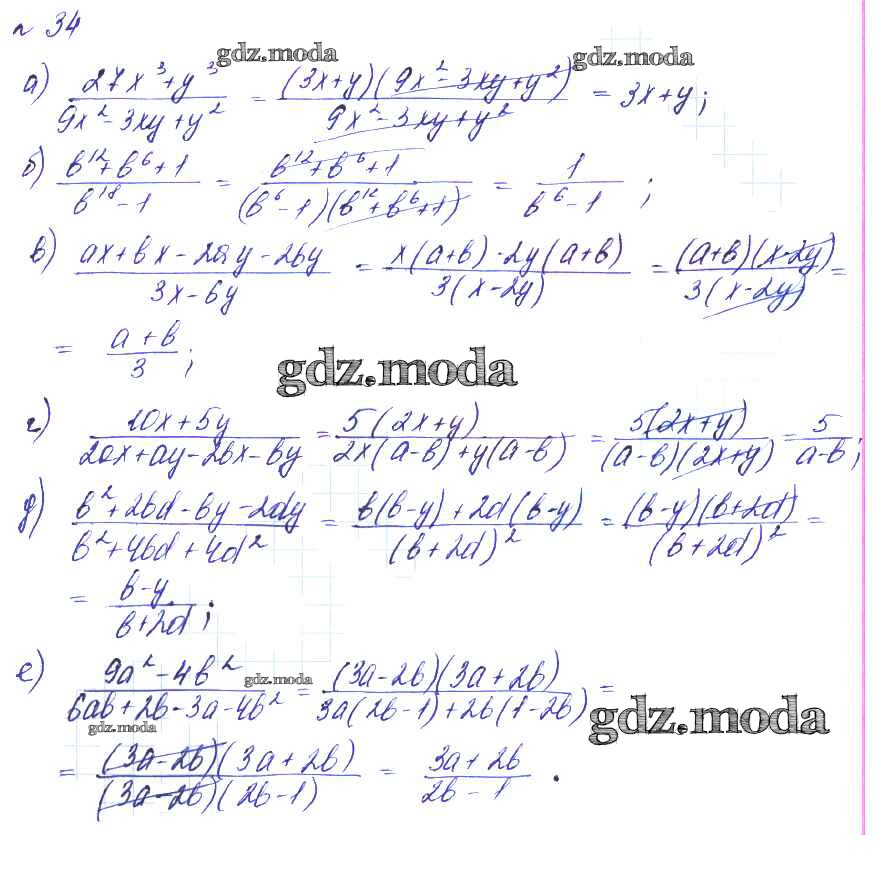 n 34
gdz.moda gdz.moda
а) (27x³+y³)/(9x²-3xy+y²) = ((3x+y)(9x²-3xy+y²))/(9x²-3xy+y²) = 3x+y;
б) (b¹²+b⁶+1)/(b¹⁸-1) = (b¹²+b⁶+1)/((b⁶-1)(b¹²+b⁶+1)) = 1/(b⁶-1) ;
в) (ax+bx-2ay-2by)/(3x-6y) = (x(a+b)-2y(a+b))/(3(x-2y)) = ((a+b)(x-2y))/(3(x-2y)) =
= (a+b)/3 ;
gdz.moda
г) (10x+5y)/(2ax+ay-2bx-by) = (5(2x+y))/(2x(a-b)+y(a-b)) = (5(2x+y))/((a-b)(2x+y)) = 5/(a-b);
д) (b²+2bd-by-2dy)/(b²+4bd+4d²) = (b(b-y)+2d(b-y))/((b+2d)²) = ((b-y)(b+2d))/((b+2d)²) =
= (b-y)/(b+2d) ;
е) (9a²-4b²)/(6ab+2b-3a-4b²) = ((3a-2b)(3a+2b))/(3a(2b-1)+2b(1-2b)) =
gdz.moda
gdz.moda
gdz.moda
= ((3a-2b)(3a+2b))/((3a-2b)(2b-1)) = (3a+2b)/(2b-1) .